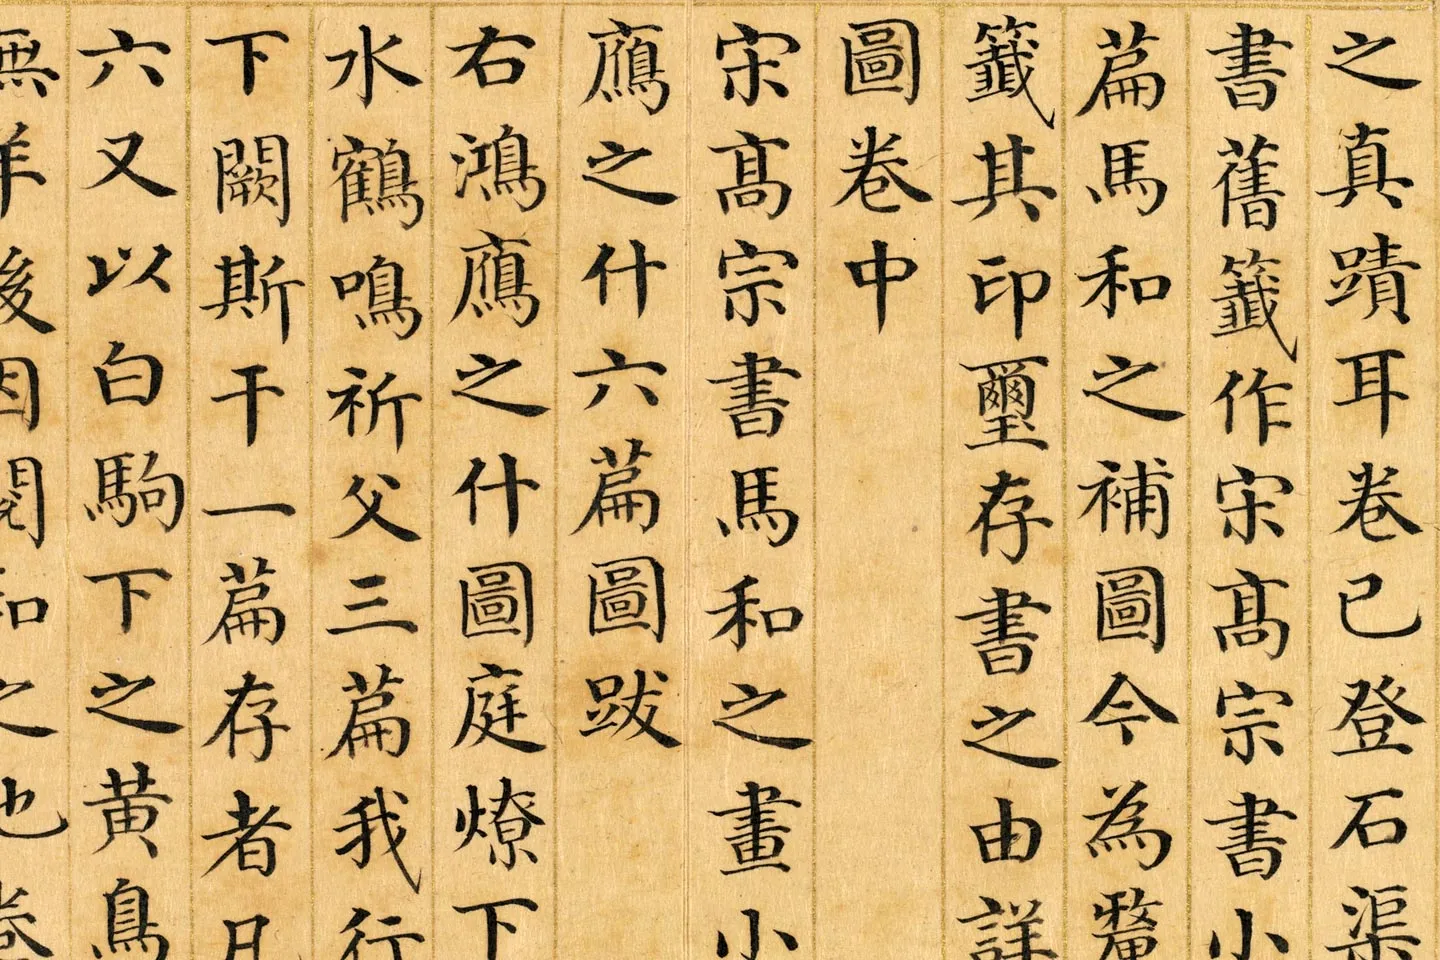 之真蹟耳卷已登石渠
書舊籤作宋髙宗書小
篇馬和之補圖今為釐
籤其印璽存書之由詳
圖卷中
宋髙宗書馬和之畫小
鴈之什六篇圖跋
右鴻鴈之什圖庭燎下
水鶴鳴祈父三篇我行
下闕斯干一篇存者凡
六又以白駒下之黄鳥
無羊後因閱和之也卷